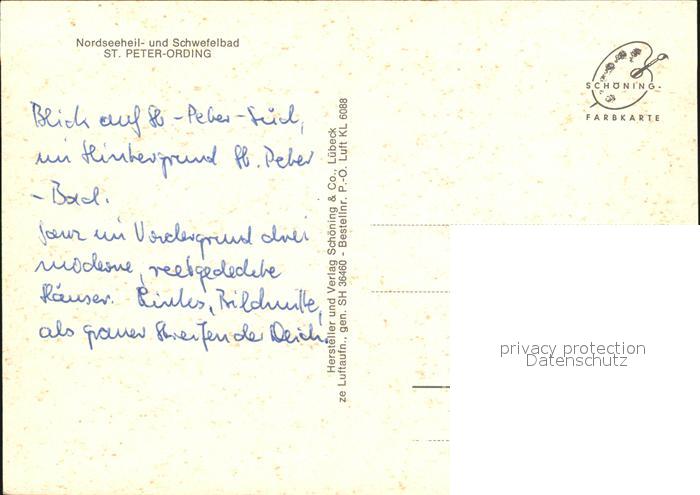 Nordseeheil- und Schwefelbad
ST. PETER-ORDING
Blick auf St-Peter-Süd,
im Hintergrund St. Peter
- Bad.
Ganz im Vordergrund drei
moderne, reetgedeckte
Häuser. Links, Bildmitte,
als grauer Streifen der Deich.
Hersteller und Verlag Schöning & Co., Lübeck
ze Luftaufn., gen. SH 36460 - Bestellnr. P.-O. Luft KL 6088
SCHÖNING-
FARBKARTE
privacy protection
Datenschutz